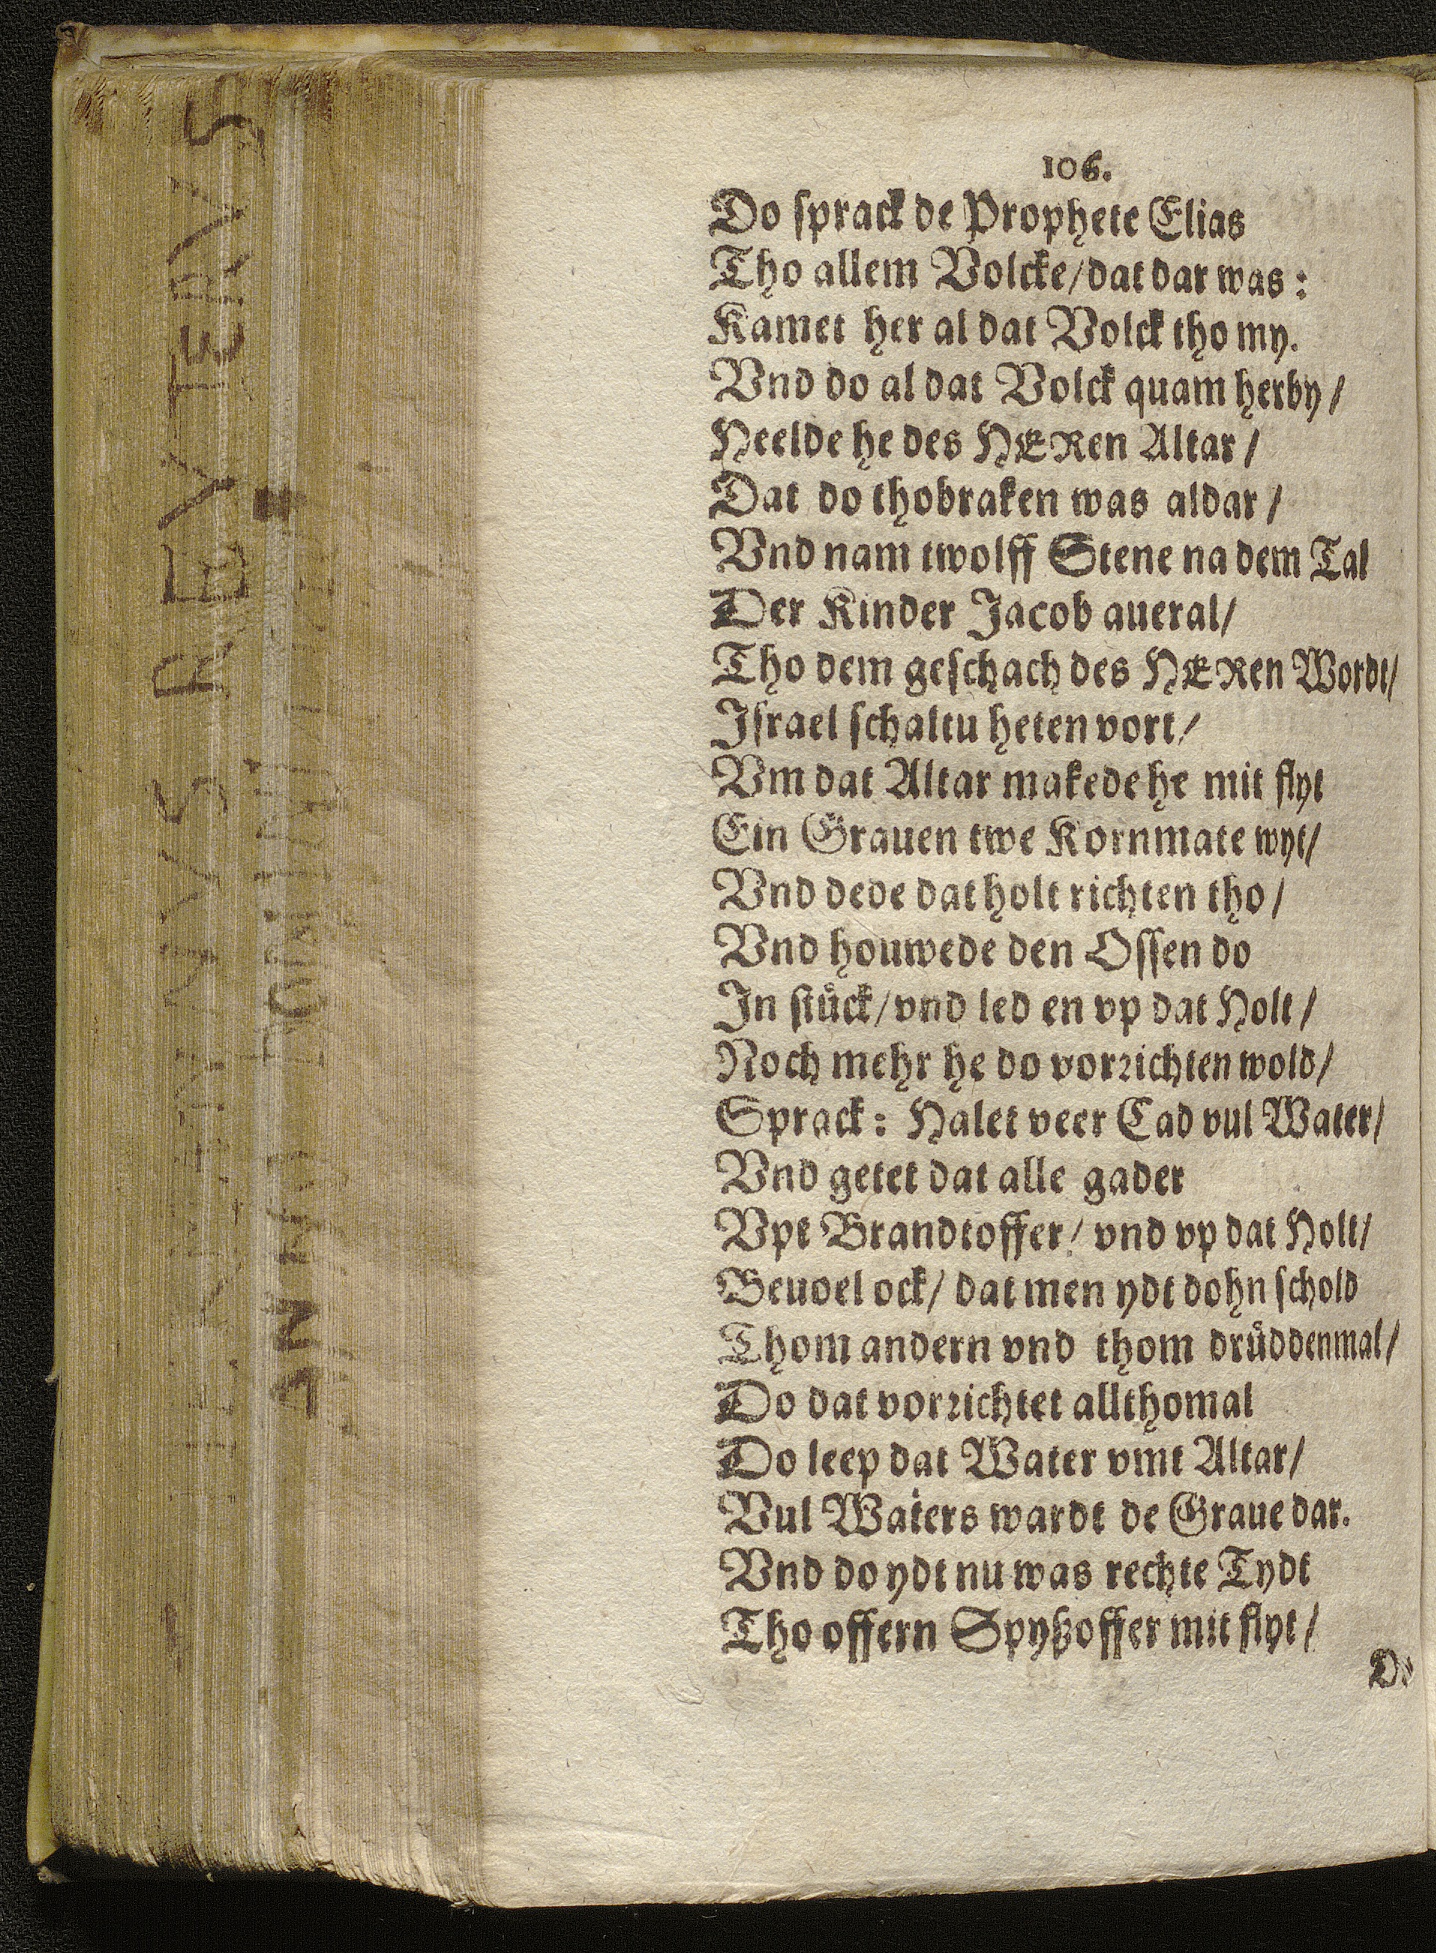 106.
Do sprack de Prophete Elias
Tho allem Volcke/dat dar was:
Kamet her al dat Volck tho my.
Vnd do al dat Volck quam herby/
Heelde he des HERen Altar/
Dat do thobraken was aldar/
Vnd nam twolff Stene na dem Tal
Der Kinder Jacob aueral/
Tho dem geschach des HERen Wordt/
Israel schaltu heten vort/
Vm dat Altar makede he mit flyt
Ein Grauen twe Kornmate wyt/
Vnd dede dat holt richten tho/
Vnd houwede den Ossen do
In stuͤck/vnd led en vp dat Holt/
Noch mehr he do vorrichten wold/
Sprack: Halet veer Cad vul Water/
Vnd getet dat alle gader
Vpt Brandtoffer/ vnd vp dat Holt/
Beuoel ock/ dat men ydt dohn schold
Thom andern vnd thom druͤddenmal/
Do dat vorrichtet allthomal
Do leep dat Water vmt Altar/
Vul Waters wardt de Graue dar.
Vnd do ydt nu was rechte Tydt
Tho offern Spyßoffer mit flyt/
REVTERVS
ANNO DOMINI